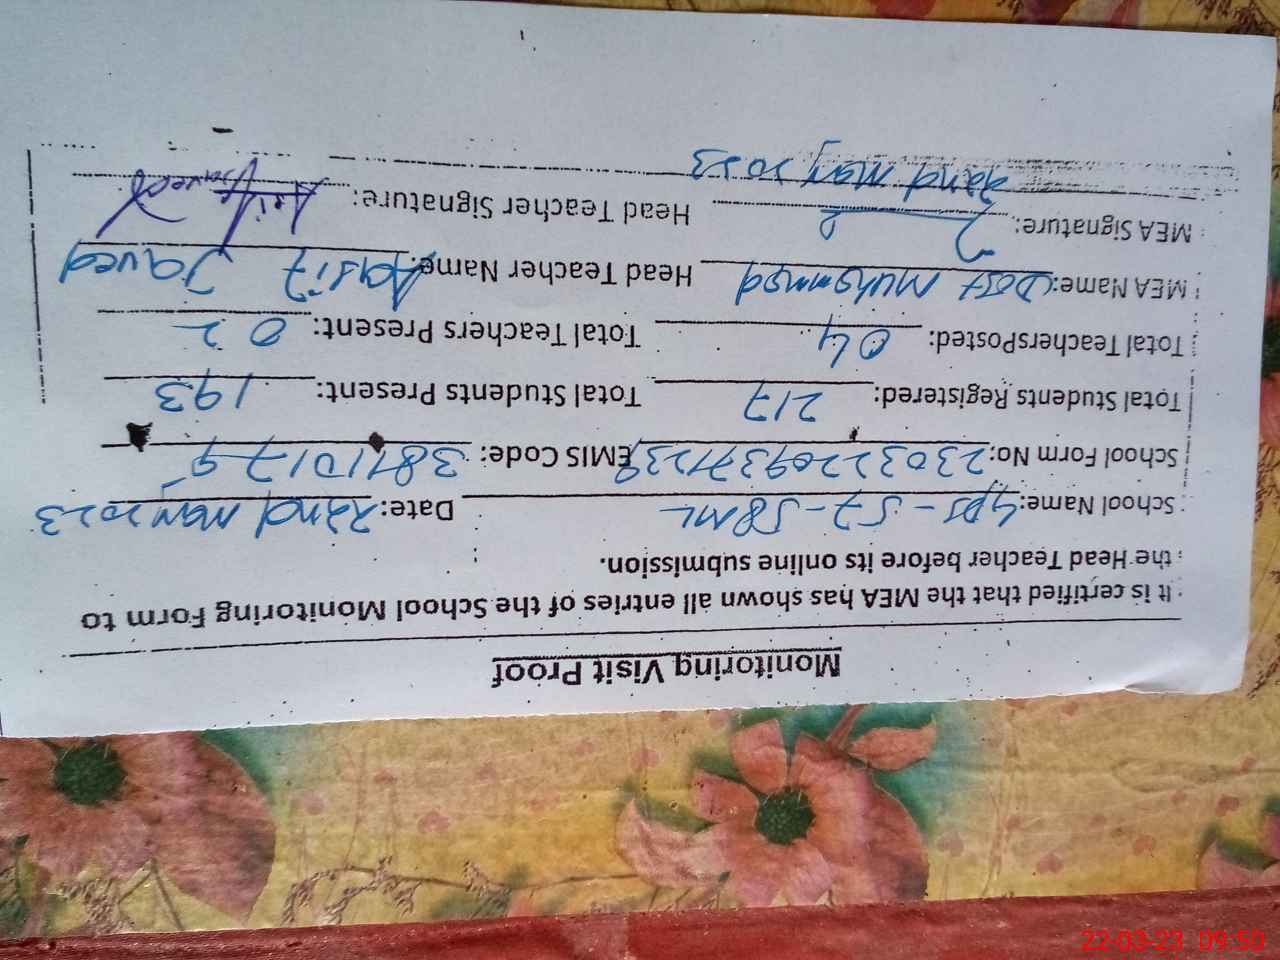 Monitoring Visit Proof
It is certified that the MEA has shown all entries of the School Monitoring Form to
the Head Teacher before its online submission.
School Name: GPS - 57 - 58 ML Date: 22nd Mar 2023
School Form No: EMIS Code:
Total Students Registered: 217 Total Students Present: 193
Total TeachersPosted: 04 Total Teachers Present: 02
MEA Name: Dost Muhammad Head Teacher Name: Aasif Javed
MEA Signature: Head Teacher Signature: Asif Javed
22nd Mar 2023
22-03-23 09:50